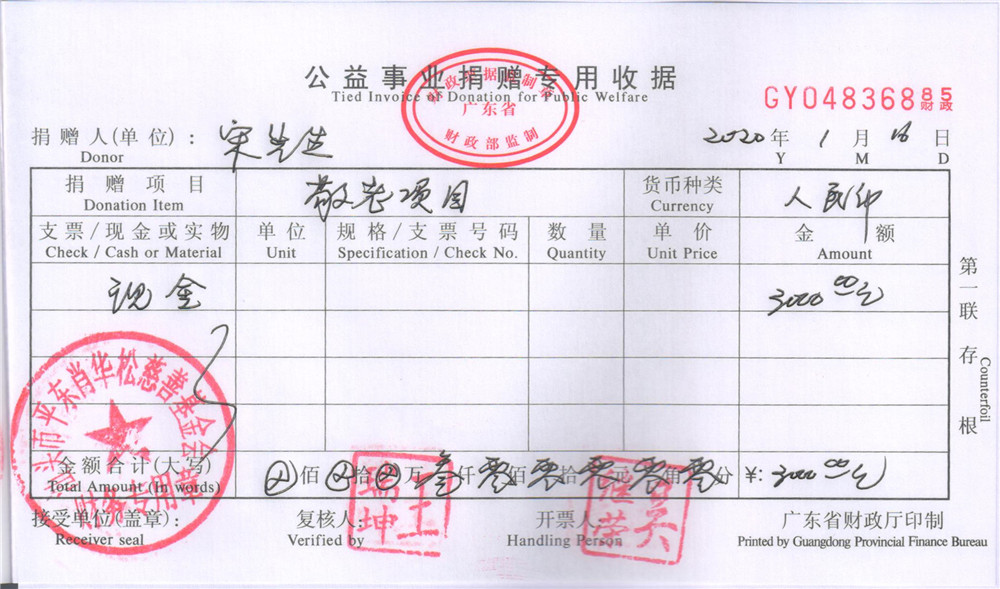 公益事业捐赠专用收据
Tied Invoice of Donation for Public Welfare
财政票据监制章
广东省
财政部监制
GY04836885
财政
捐赠人(单位): 宋先生
Donor
2020年 1月 16日
Y M D
捐赠项目 敬老项目 货币种类 人民币
Donation Item Currency
支票/现金或实物 单位 规格/支票号码 数量 单价 金额
Check / Cash or Material Unit Specification / Check No. Quantity Unit Price Amount
现金 3000.00元
第一联 存根
Counterfoil
汕头市平东肖华松慈善基金会
财务专用章
金额合计(大写) 佰 拾 万 叁仟 零佰 零拾 零元 零角 零分 ¥: 3000.00元
Total Amount (In words)
接受单位(盖章): 复核人: 开票人:
Receiver seal Verified by Handling Person
王瑞坤
广东省财政厅印制
Printed by Guangdong Provincial Finance Bureau